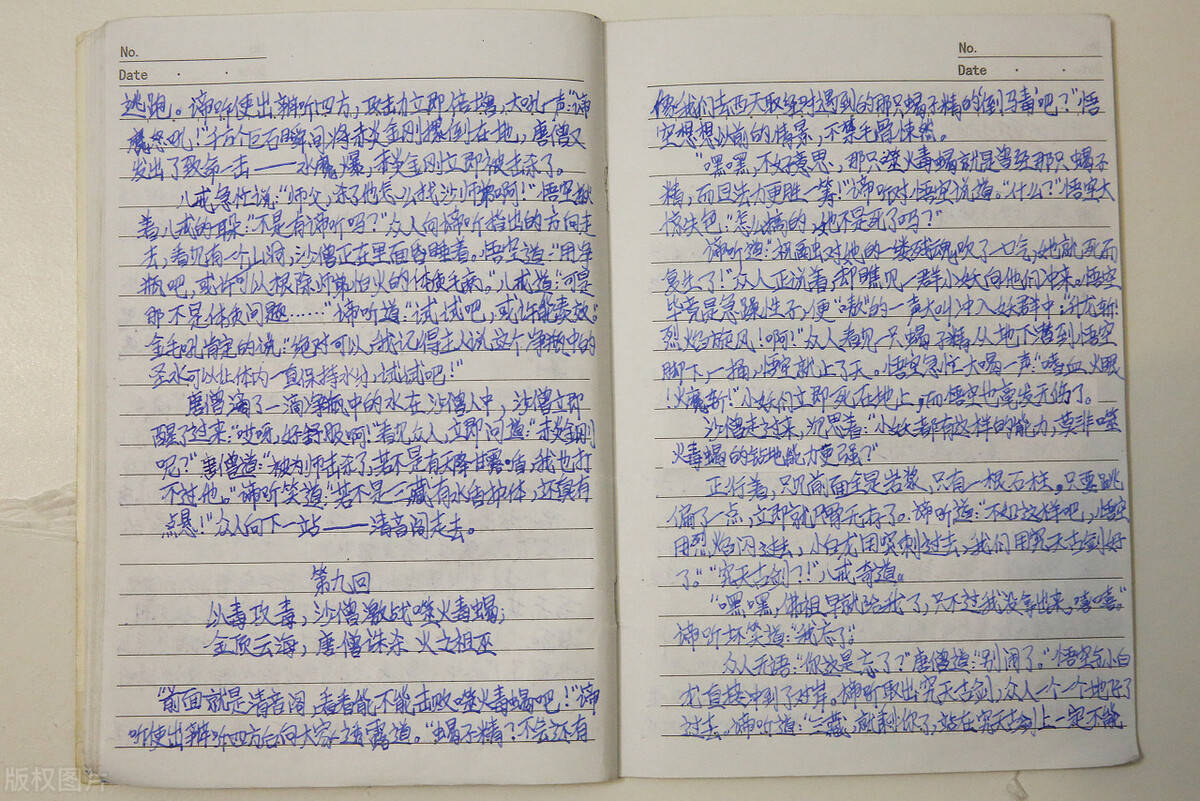 No.
Date
逃跑。谛听使出辨听四方,攻击力立即倍增,大吼一声:“谛
听怒吼!”千万个巨石瞬间将赤炎金刚撂倒在地,唐僧又
发出了致命一击——水魔爆,赤炎金刚立即被击杀了。
八戒急忙说:“师父,杀了他怎么找沙师弟啊!”悟空揪
着八戒的耳朵:“不是有谛听吗?”众人向谛听指出的方向走
去,看见有一个山洞,沙僧正在里面昏睡着。悟空道:“用净
瓶吧,或许可以根除师弟怕火的体质毛病。”八戒道:“可是
那不是体质问题……”谛听道:“试试吧,或许能奏效。”
金毛吼肯定的说:“绝对可以,我记得主人说这个净瓶中的
圣水可以让体内一直保持水分,试试吧!”
唐僧滴了一滴净瓶中的水在沙僧人中,沙僧立即
醒了过来:“哎呀,好舒服啊!”看见众人,立即问道:“赤炎金刚
呢?”唐僧道:“被为师击杀了,若不是有天降甘露盾,我也打
不过他。”谛听笑道:“若不是三藏有水盾护体,还真有
点悬!”众人向下一站——清音阁走去。
第九回
以毒攻毒,沙僧激战噬火毒蝎;
金顶云海,唐僧诛杀火之祖巫
“前面就是清音阁,看看能不能击败噬火毒蝎吧!”谛
听使出辨听四方后向大家透露道。“蝎子精?不会还有
No.
Date
像我们去西天取经时遇到的那只蝎子精的‘倒马毒’吧?”悟
空想想以前的情景,不禁毛骨悚然。
“嘿嘿,不好意思,那只噬火毒蝎就是曾经那只蝎子
精,而且法力更胜一筹!”谛听对悟空说道。“什么?”悟空大
惊失色:“怎么搞的,她不是死了吗?”
谛听道:“祝融出对他的一缕残魂吹了一口气,她就死而
复生了!”众人正说着,却瞧见一群小妖向他们冲来。悟空
毕竟是急躁性子,便“嗷”的一声大叫冲入妖群中:“升龙斩!
烈焰旋风!啊!”众人看见一只蝎子精从地下遁到悟空
脚下,一捅,悟空就上了天。悟空急忙大喝一声:“嗜血,火眼
!火魔斩!”小妖们立即死在地上,而悟空也毫发无伤了。
沙僧走过来,沉思着:“小妖都有这样的能力,莫非噬
火毒蝎的钻地能力更强?”
正行着,只见前面全是岩浆,只有一根石柱。只要跳
偏了一点,立即就尸骨无存了。谛听道:“不如这样吧,悟空
用烈焰闪过去,小白龙用突刺过去,我们用究天古剑好
了。”“究天古剑?!”八戒奇道。
“嘿嘿,佛祖早就给我了,只不过我没拿出来,嘻嘻。”
谛听坏笑道:“我忘了。”
众人无语:“你这是忘了?”唐僧道:“别闹了。”悟空与小白
龙直接冲到了对岸。谛听取出究天古剑,众人一个一个地
过去。谛听道:“三藏,就剩你了,站在究天古剑上一定不能
版权图片